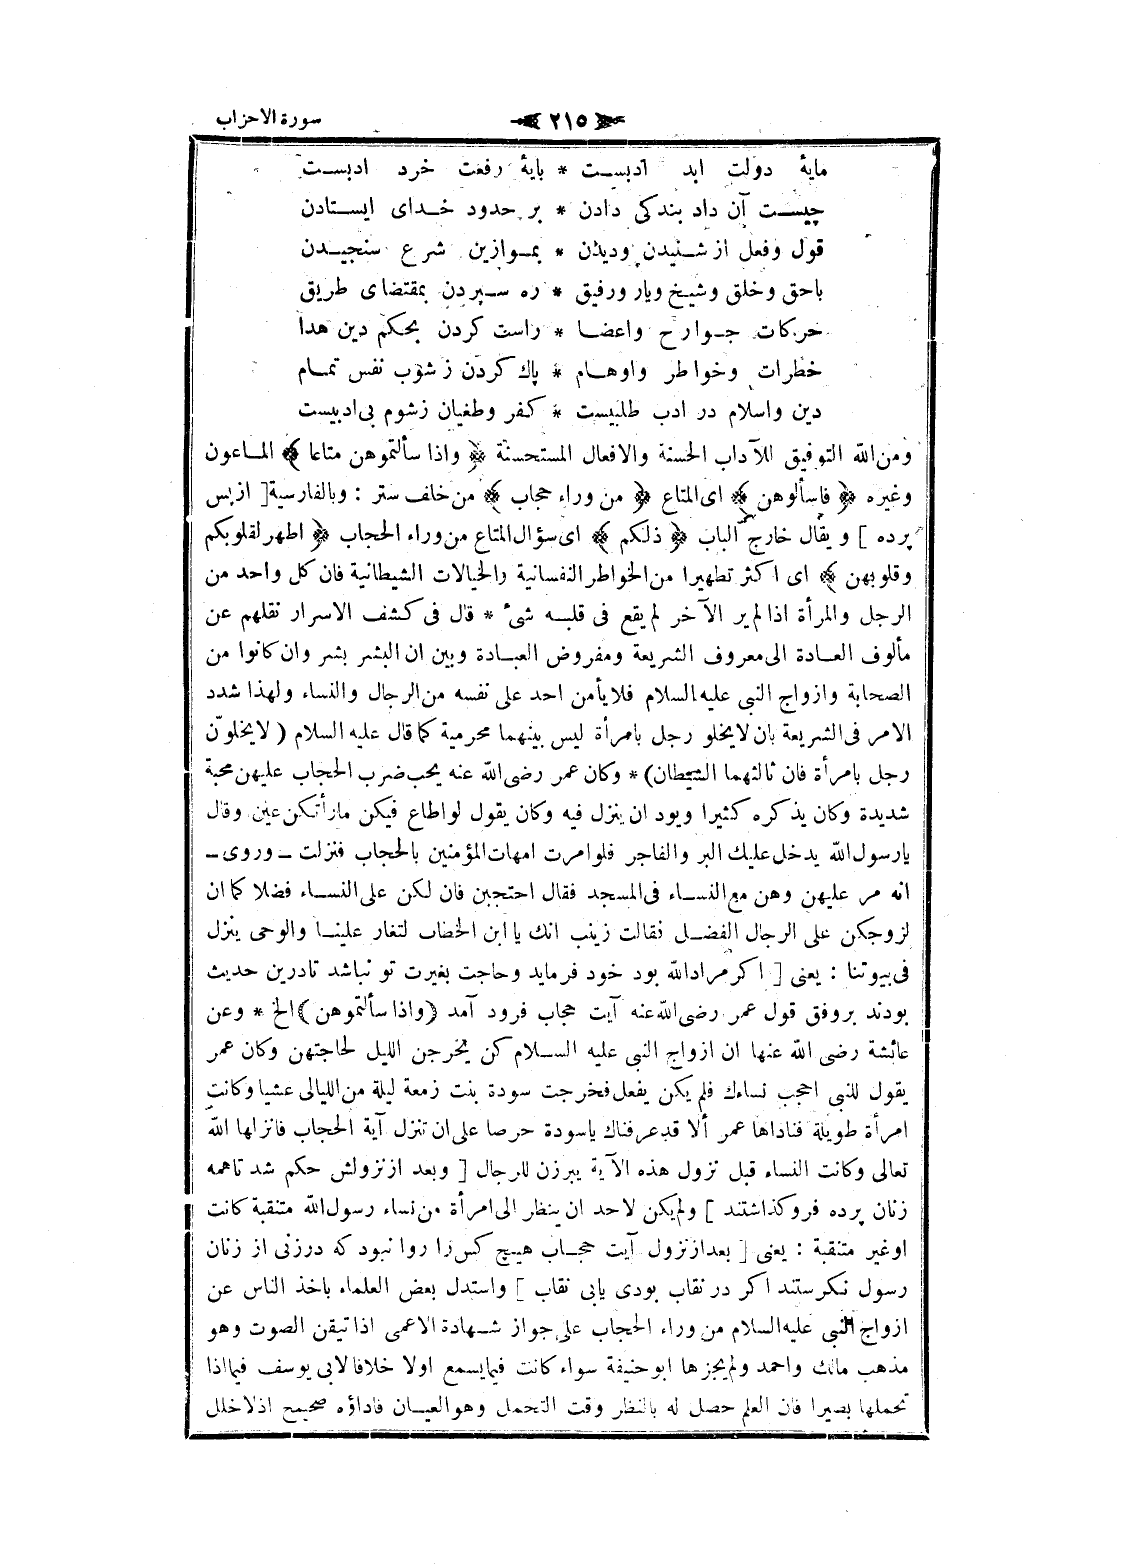 سورة الاحزاب
﴿ ٢١٥ ﴾
مایۀ دولت ابد ادبست * پایۀ رفعت خرد ادبست
چیست آن داد بندکی دادن * بر حدود خدای ایستادن
قول وفعل از شنیدن ودیدن * بموازین شرع سنجیدن
باحق وخلق وشیخ ویار ورفیق * ره سپردن بمقتضای طریق
حرکات جوارح واعضا * راست کردن بحکم دین هدا
خطرات وخواطر واوهام * پاك کردن ز شوب نفس تمام
دین واسلام در ادب طلبیست * کفر وطغیان زشوم بی‌ادبیست
ومن‌الله التوفيق للآداب الحسنة والافعال المستحسنة ﴿ واذا سألتموهن متاعا ﴾ الماعون
وغيره ﴿ فاسألوهن ﴾ اى‌المتاع ﴿ من وراء حجاب ﴾ من خلف ستر : وبالفارسية [ ازپس
پرده ] ويقال خارج الباب ﴿ ذلكم ﴾ اى سؤال المتاع من وراء الحجاب ﴿ اطهر لقلوبكم
وقلوبهن ﴾ اى اكثر تطهيرا من‌الخواطر النفسانية والخيالات الشيطانية فان كل واحد من
الرجل والمرأة اذا لم ير الآخر لم يقع فى قلبه شئ * قال فى كشف الاسرار نقلهم عن
مألوف العادة الى‌معروف الشريعة ومفروض العبادة وبين ان البشر بشر وان كانوا من
الصحابة وازواج النبى عليه‌السلام فلا يأمن احد على نفسه من‌الرجال والنساء ولهذا شدد
الامر فى‌الشريعة بان لا يخلو رجل بامرأة ليس بينهما محرمية كما قال عليه السلام ( لا يخلونّ
رجل بامرأة فان ثالثهما الشيطان) * وكان عمر رضى‌الله عنه يحب ضرب الحجاب عليهن محبة
شديدة وكان يذكره كثيرا ويود ان ينزل فيه وكان يقول لو اطاع فيكن مارأتكن عين وقال
يارسول‌الله يدخل عليك البر والفاجر فلو امرت امهات المؤمنين بالحجاب فنزلت ـ وروى ـ
انه مر عليهن وهن مع‌النساء فى‌المسجد فقال احتجبن فان لكن على‌النساء فضلا كما ان
لزوجكن على الرجال الفضل فقالت زينب انك يا ابن الخطاب لتغار علينا والوحى ينزل
فى‌بيوتنا : يعنى [ اکر مراد الله بود خود فرماید وحاجت بغیرت تو نباشد تادرین حدیث
بودند بروفق قول عمر رضى‌الله‌عنه آیت حجاب فرود آمد (واذا سألتموهن) الخ * وعن
عائشة رضى الله عنها ان ازواج النبى عليه السلام كن يخرجن الليل لحاجتهن وكان عمر
يقول للنبى احجب نساءك فلم يكن يفعل فخرجت سودة بنت زمعة ليلة من‌الليالى عشيا وكانت
امرأة طويلة فناداها عمر ألا قد عرفناك ياسودة حرصا على ان تنزل آية الحجاب فانزلها الله
تعالى وكانت النساء قبل نزول هذه الآية يبرزن للرجال [ وبعد ازنزولش حکم شد تاهمه
زنان پرده فروکذاشتند ] ولم يكن لاحد ان ينظر الى‌امرأة من‌نساء رسول‌الله متنقبة كانت
اوغير متنقبة : يعنى [ بعدازنزول آیت حجاب هیچ کس‌را روا نبود که درزنی از زنان
رسول نکرستند اکر در نقاب بودی یابی نقاب ] واستدل بعض العلماء باخذ الناس عن
ازواج النبى عليه‌السلام من وراء الحجاب على جواز شهادة الاعمى اذا تيقن الصوت وهو
مذهب مالك واحمد ولم يجزها ابوحنيفة سواء كانت فيما يسمع اولا خلافا لابى يوسف فيما اذا
تحملها بصيرا فان العلم حصل له بالنظر وقت التحمل وهو العيان فاداؤه صحيح اذ لا خلل